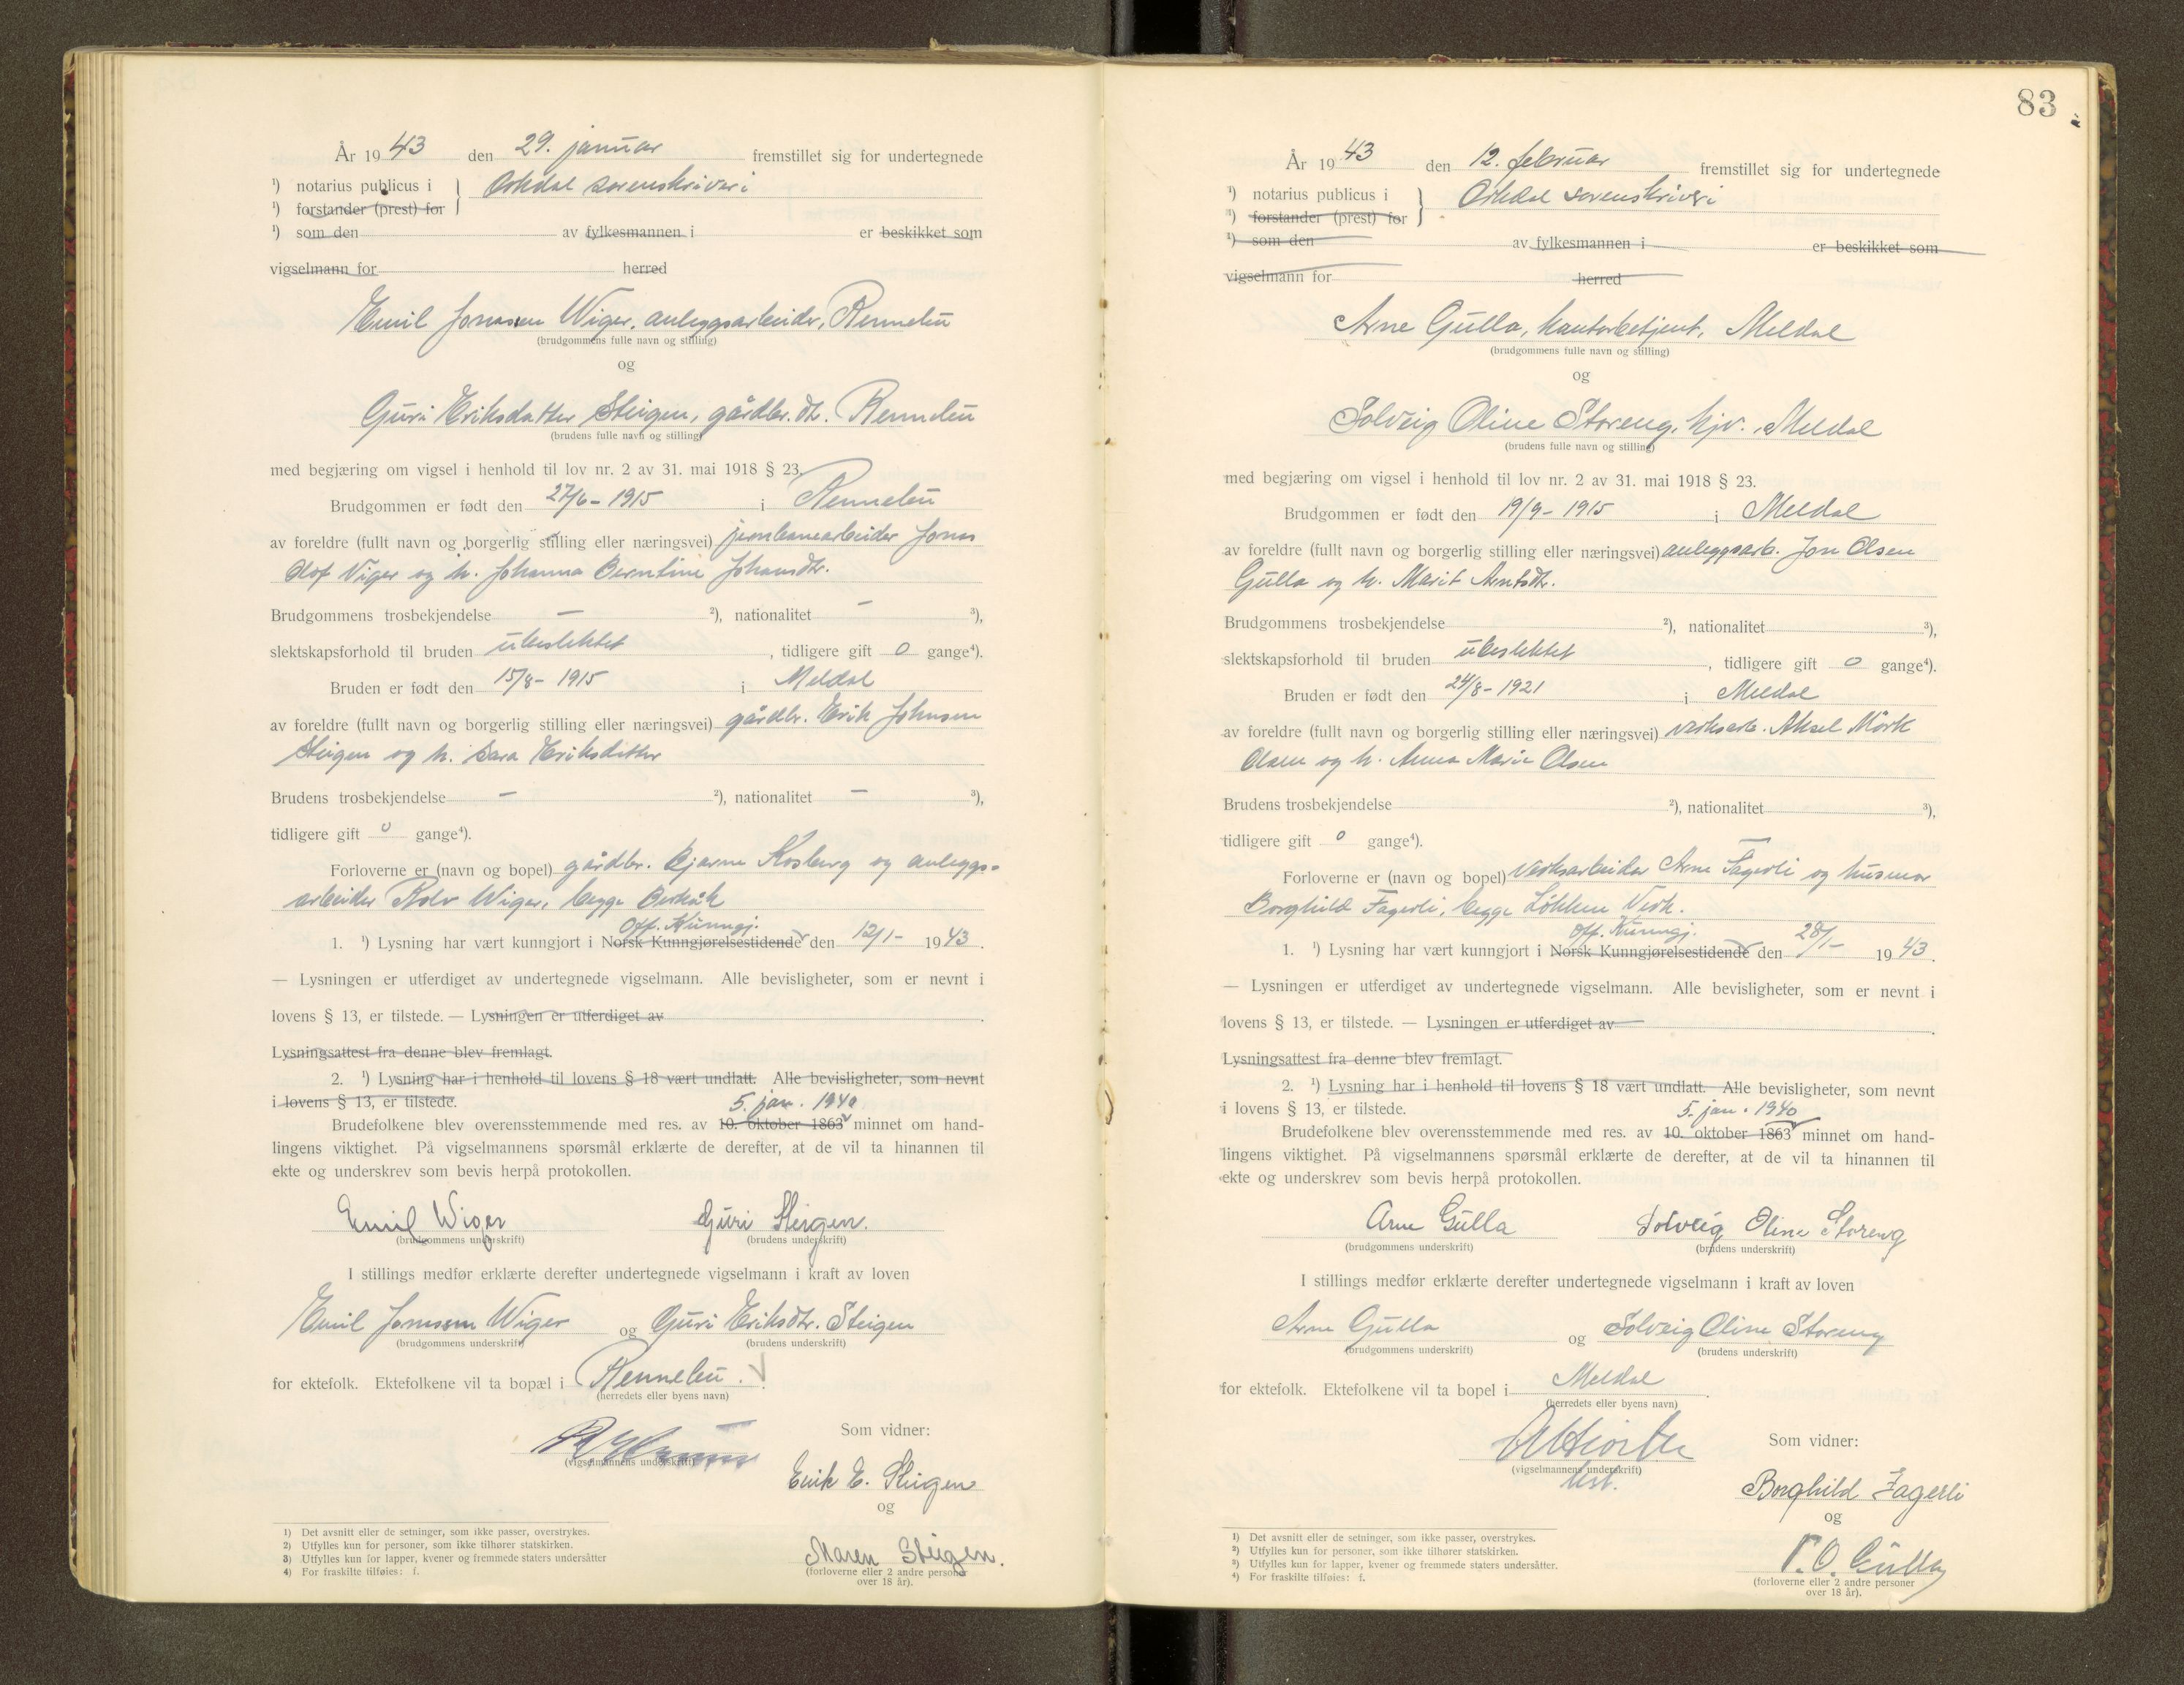 År 1943 den 29. januar fremstillet sig for undertegnede
¹) notarius publicus i } Orkdal sorenskriveri
¹) forstander (prest) for
¹) som den av fylkesmannen i er beskikket som
vigselmann for herred
Emil Jonassen Wiger, anleggsarbeider, Rennebu
(brudgommens fulle navn og stilling)
og
Guri Eriksdatter Steigen, gårdbr. dtr. Rennebu
(brudens fulle navn og stilling)
med begjæring om vigsel i henhold til lov nr. 2 av 31. mai 1918 § 23.
Brudgommen er født den 27/6 - 1915 i Rennebu
av foreldre (fullt navn og borgerlig stilling eller næringsvei) jernbanearbeider Jonas
Olof Viger og h. Johanna Berntine Johansdtr.
Brudgommens trosbekjendelse — ²), nationalitet — ³),
slektskapsforhold til bruden ubeslektet, tidligere gift 0 gange⁴).
Bruden er født den 15/8 - 1915 i Meldal
av foreldre (fullt navn og borgerlig stilling eller næringsvei) gårdbr. Erik Johnsen
Steigen og h. Sara Eriksdatter
Brudens trosbekjendelse — ²), nationalitet — ³),
tidligere gift 0 gange⁴).
Forloverne er (navn og bopel) gårdbr. Bjarne Kosberg og anleggs-
arbeider Rolv Wiger, begge Berkåk
Off. Kunngj.
1. ¹) Lysning har vært kunngjort i Norsk Kunngjørelsestidende den 12/1 - 1943.
— Lysningen er utferdiget av undertegnede vigselmann. Alle bevisligheter, som er nevnt i
lovens § 13, er tilstede. — Lysningen er utferdiget av .
Lysningsattest fra denne blev fremlagt.
2. ¹) Lysning har i henhold til lovens § 18 vært undlatt. Alle bevisligheter, som nevnt
i lovens § 13, er tilstede.
5. jan. 1940
Brudefolkene blev overensstemmende med res. av 10. oktober 1863 minnet om hand-
lingens viktighet. På vigselmannens spørsmål erklærte de derefter, at de vil ta hinannen til
ekte og underskrev som bevis herpå protokollen.
Emil Wiger Guri Steigen.
(brudgommens underskrift) (brudens underskrift)
I stillings medfør erklærte derefter undertegnede vigselmann i kraft av loven
Emil Jonassen Wiger og Guri Eriksdtr. Steigen
(brudgommens underskrift) (brudens underskrift)
for ektefolk. Ektefolkene vil ta bopæl i Rennebu.
(herredets eller byens navn)
Som vidner:
(vigselmannens underskrift)
Erik E. Steigen
og
Maren Steigen.
(forloverne eller 2 andre personer
over 18 år).
1) Det avsnitt eller de setninger, som ikke passer, overstrykes.
2) Utfylles kun for personer, som ikke tilhører statskirken.
3) Utfylles kun for lapper, kvener og fremmede staters undersåtter
4) For fraskilte tilføies: f.
83
År 1943 den 12. februar fremstillet sig for undertegnede
¹) notarius publicus i } Orkdal sorenskriveri
¹) forstander (prest) for
¹) som den av fylkesmannen i er beskikket som
vigselmann for herred
Arne Gulla, kontorbetjent, Meldal
(brudgommens fulle navn og stilling)
og
Solveig Oline Storeng, hjv., Meldal
(brudens fulle navn og stilling)
med begjæring om vigsel i henhold til lov nr. 2 av 31. mai 1918 § 23.
Brudgommen er født den 19/9 - 1915 i Meldal
av foreldre (fullt navn og borgerlig stilling eller næringsvei) anleggsarb. Jon Olsen
Gulla og h. Marit Arntsdtr.
Brudgommens trosbekjendelse ²), nationalitet ³),
slektskapsforhold til bruden ubeslektet, tidligere gift 0 gange⁴).
Bruden er født den 24/8 - 1921 i Meldal
av foreldre (fullt navn og borgerlig stilling eller næringsvei) verksarb. Aksel Mørk
Olsen og h. Anna Marie Olsen
Brudens trosbekjendelse ²), nationalitet ³),
tidligere gift 0 gange⁴).
Forloverne er (navn og bopel) Verksarbeider Arne Fagerli og husmor
Borghild Fagerli, begge Løkken Verk.
Off. Kunngj.
1. ¹) Lysning har vært kunngjort i Norsk Kunngjørelsestidende den 28/1 - 1943.
— Lysningen er utferdiget av undertegnede vigselmann. Alle bevisligheter, som er nevnt i
lovens § 13, er tilstede. — Lysningen er utferdiget av .
Lysningsattest fra denne blev fremlagt.
2. ¹) Lysning har i henhold til lovens § 18 vært undlatt. Alle bevisligheter, som nevnt
i lovens § 13, er tilstede.
5. jan. 1940
Brudefolkene blev overensstemmende med res. av 10. oktober 1863 minnet om hand-
lingens viktighet. På vigselmannens spørsmål erklærte de derefter, at de vil ta hinannen til
ekte og underskrev som bevis herpå protokollen.
Arne Gulla Solveig Oline Storeng
(brudgommens underskrift) (brudens underskrift)
I stillings medfør erklærte derefter undertegnede vigselmann i kraft av loven
Arne Gulla og Solveig Oline Storeng
(brudgommens underskrift) (brudens underskrift)
for ektefolk. Ektefolkene vil ta bopel i Meldal.
(herredets eller byens navn)
Som vidner:
(vigselmannens underskrift)
Borghild Fagerli
og
Gulla
(forloverne eller 2 andre personer
over 18 år).
1) Det avsnitt eller de setninger, som ikke passer, overstrykes.
2) Utfylles kun for personer, som ikke tilhører statskirken.
3) Utfylles kun for lapper, kvener og fremmede staters undersåtter.
4) For fraskilte tilføies: f.